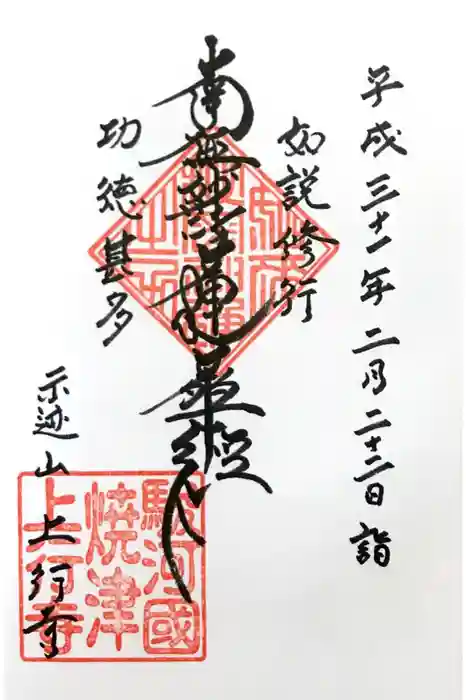 平成三十一年二月二十二日 詣
如説修行
南無妙法蓮華経
功徳甚多
示迹山 上行寺
駿河國
焼津
上行寺